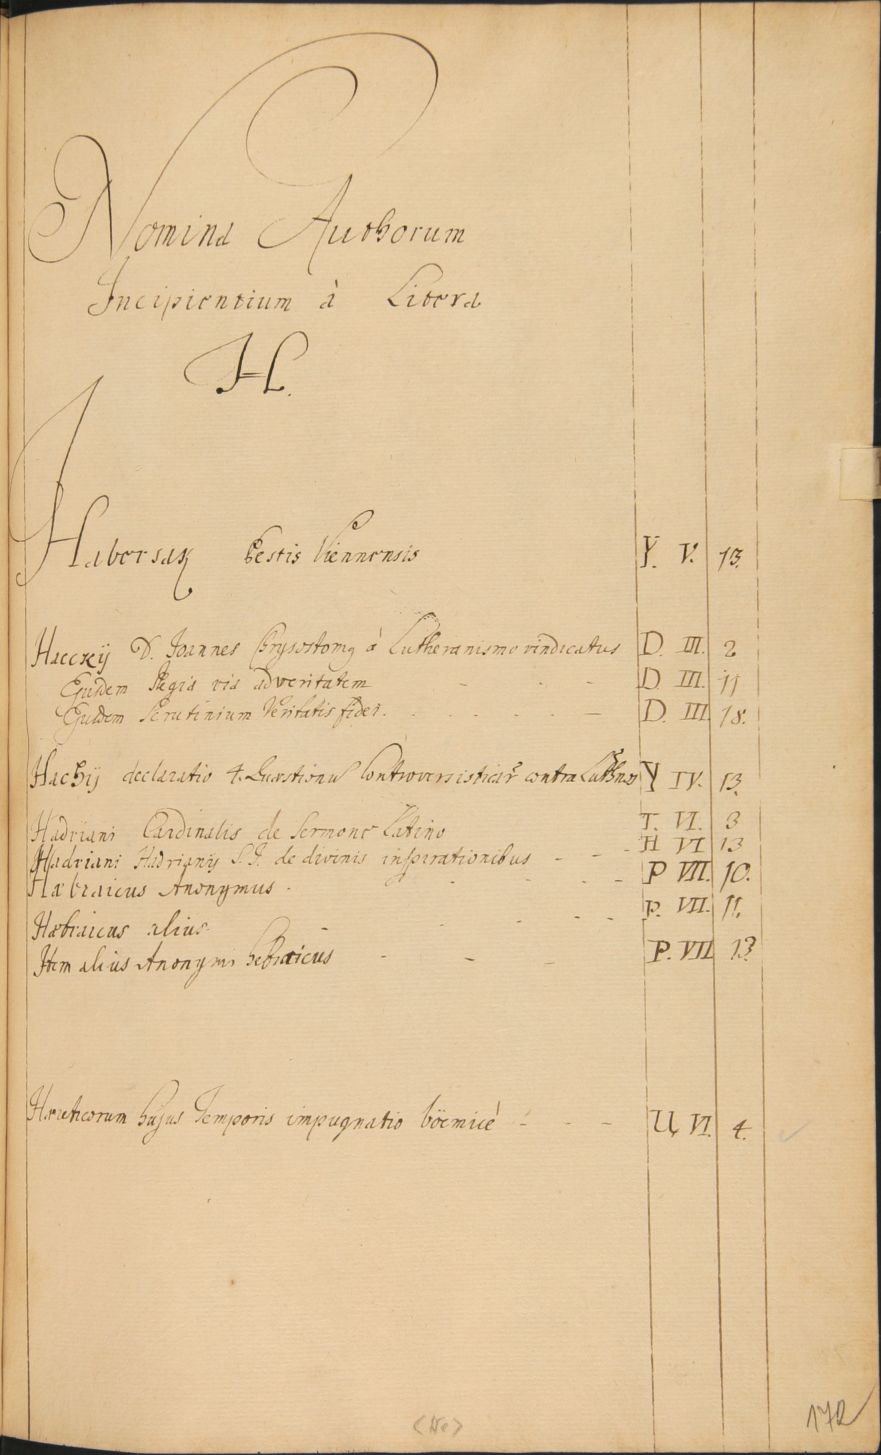 Nomina Authorum
Incipientium à Litera
H.
Habersak Pestis Viennensis Y. V. 13.
Hacckij D. Joannes Chrysostomg à Lutheranismo vindicatus D. III. 2
Ejusdem Regia via ad veritatem - - - D. III. 11
Ejusdem Scrutinium Veritatis fidei. - - - D. III. 18.
Hachij declaratio 4. Quæstionū Controversisticar̄ contra Y IV. 13.
Hadriani Cardinalis de Sermone Latino T. VI. 3
Hadriani Hadrianij S.J. de divinis inspirationibus - - H VI 13
Hæbraicus Anonymus. - - - P VII. 10.
Hæbraicus alius. - - - P. VII. 11.
Item alius Anonymi hebraicus - - - P. VII 13
Hæreticorum hujus Temporis impugnatio böemicé - - - U VI. 4.
172